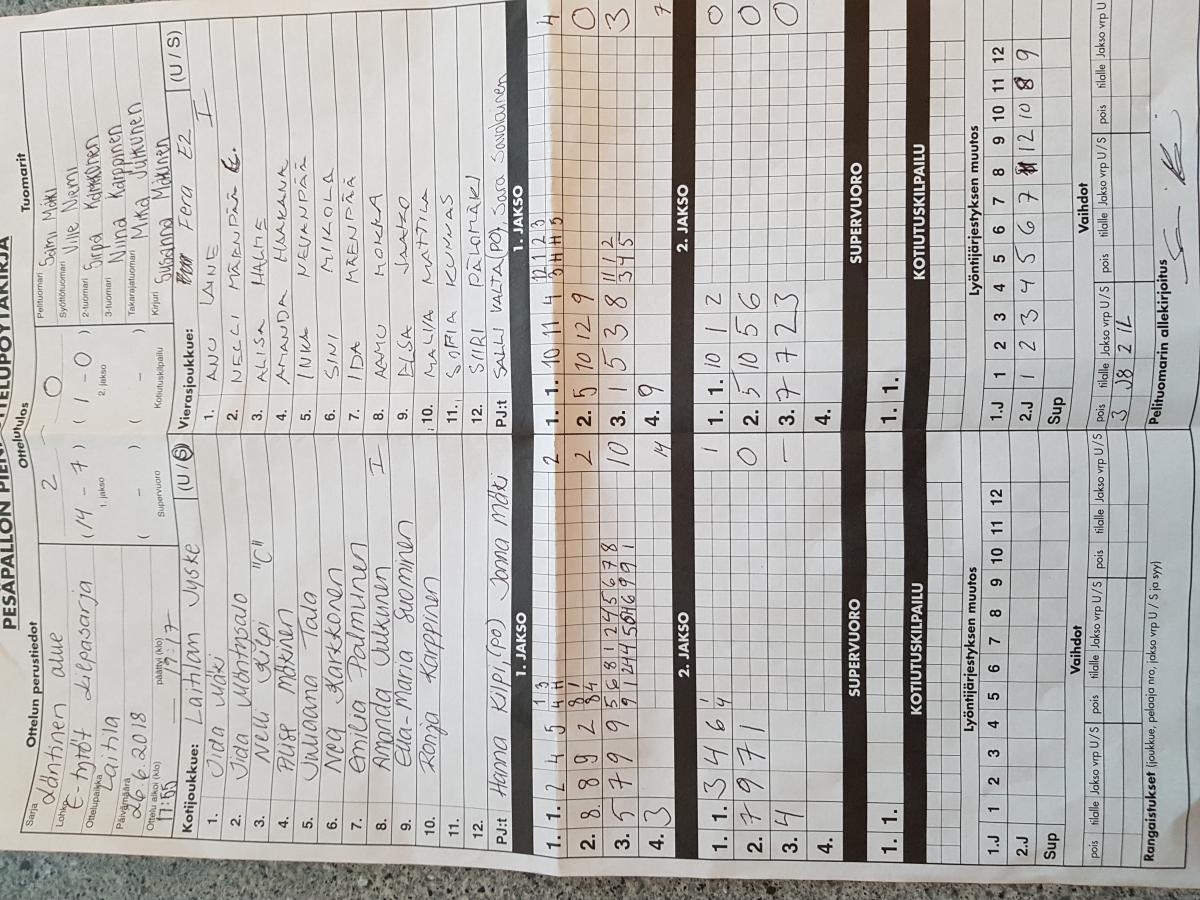 PESÄPALLON
Ottelun perustiedot Ottelutulos Tuomarit
Sarja Läntinen alue
Lohko E-tytöt Leilpasarja
Ottelupaikka Laitila
Päivämäärä 26.6.2018
Ottelu alkoi (klo) 17:55 päättyi (klo) 19:17
2 - 0
(14 - 7) (1 - 0)
1. jakso 2. jakso
( - ) ( - )
Supervuoro Kotiutuskilpailu
Pelituomari Sami Mäki
Syöttötuomari Ville Niemi
2-tuomari Sirpa Karkkonen
3-tuomari Niina Karppinen
Takarajatuomari Mika Julkunen
Kirjuri Susanna Mäkinen
Kotijoukkue: Laitilan Jyske (U / S)
1. Iida Mäki
2. Iida Mäntysalo
3. Nelli Kilpi "C"
4. Aliise Mäkinen
5. Juliaana Tala
6. Nea Karkkonen
7. Emilia Palmunen
8. Amanda Julkunen I
9. Ella-Maria Suominen
10. Ronja Karppinen
11.
12.
PJ:t Hanna Kilpi, (PO) Janna Mäki
Vierasjoukkue: Fera E2 (U / S)
1. ANU LAINE I
2. NELLI MÄENPÄÄ C.
3. ALISA HALME
4. AMANDA HAAKANA
5. INKA NEVANPÄÄ
6. SINI MIKOLA
7. IDA MÄENPÄÄ
8. AAMU MOKKA
9. ELSA JAAKO
10. MALVA MATTILA
11. SOFIA KUNNAS
12. SIIRI PALOMÄKI
PJ:t SALLI VALTA (PO), Sara Savolainen
1. JAKSO 1. JAKSO
1. 1. 2 4 5 2
2. 8 8 9 2 2
3. 5 7 9 9 5 6 8 1 2 4 5 6 7 8 10
4. 3 14
1. 1. 10 11 4 4
2. 5 10 12 9 0
3. 1 5 3 8 3
4. 9 7
2. JAKSO 2. JAKSO
1. 1. 3 4 6 1
2. 7 9 7 1 0
3. 4 -
4.
1. 1. 10 1 2 0
2. 5 10 5 6 0
3. 7 7 2 3 0
4.
SUPERVUORO SUPERVUORO
1. 1. 1. 1.
KOTIUTUSKILPAILU KOTIUTUSKILPAILU
Lyöntijärjestyksen muutos Lyöntijärjestyksen muutos
1.J 1 2 3 4 5 6 7 8 9 10 11 12
2.J
Sup
1.J 1 2 3 4 5 6 7 8 9 10 11 12
2.J 1 2 3 4 5 6 7 12 10 8 9
Sup
Vaihdot Vaihdot
pois tilalle Jakso vrp U / S pois tilalle Jakso vrp U / S pois tilalle Jakso vrp U / S
pois tilalle Jakso vrp U / S pois tilalle Jakso vrp U / S pois tilalle Jakso vrp U
Rangaistukset (joukkue, pelaaja nro, jakso vrp U / S ja syy)
Pelituomarin allekirjoitus